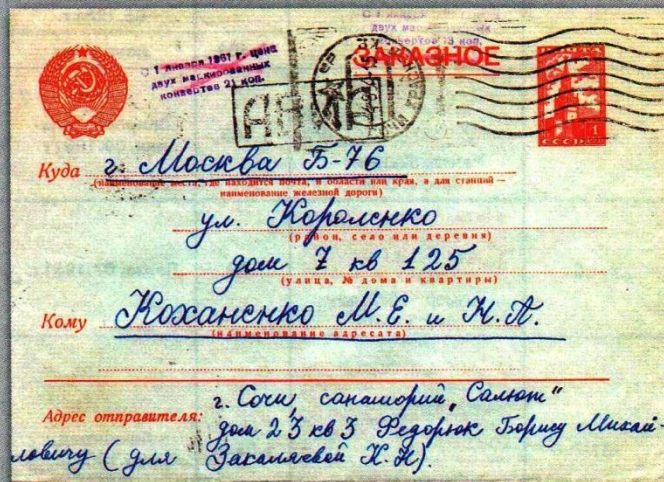 С 1 января 1961 г. цена
двух маркированных
конвертов 21 коп.
ЗАКАЗНОЕ
СССР 1
Куда г. Москва Б-76
(наименование места, где находится почта, и области или края, а для станций —
наименование железной дороги)
ул. Короленко
(район, село или деревня)
дом 7 кв 125
(улица, № дома и квартиры)
Кому Коханенко М. Е. и Н. П.
(наименование адресата)
г. Сочи, санаторий „Салют"
Адрес отправителя: дом 23 кв 3 Федорюк Борису Михай-
ловичу (для Закалячевой Н. Н).